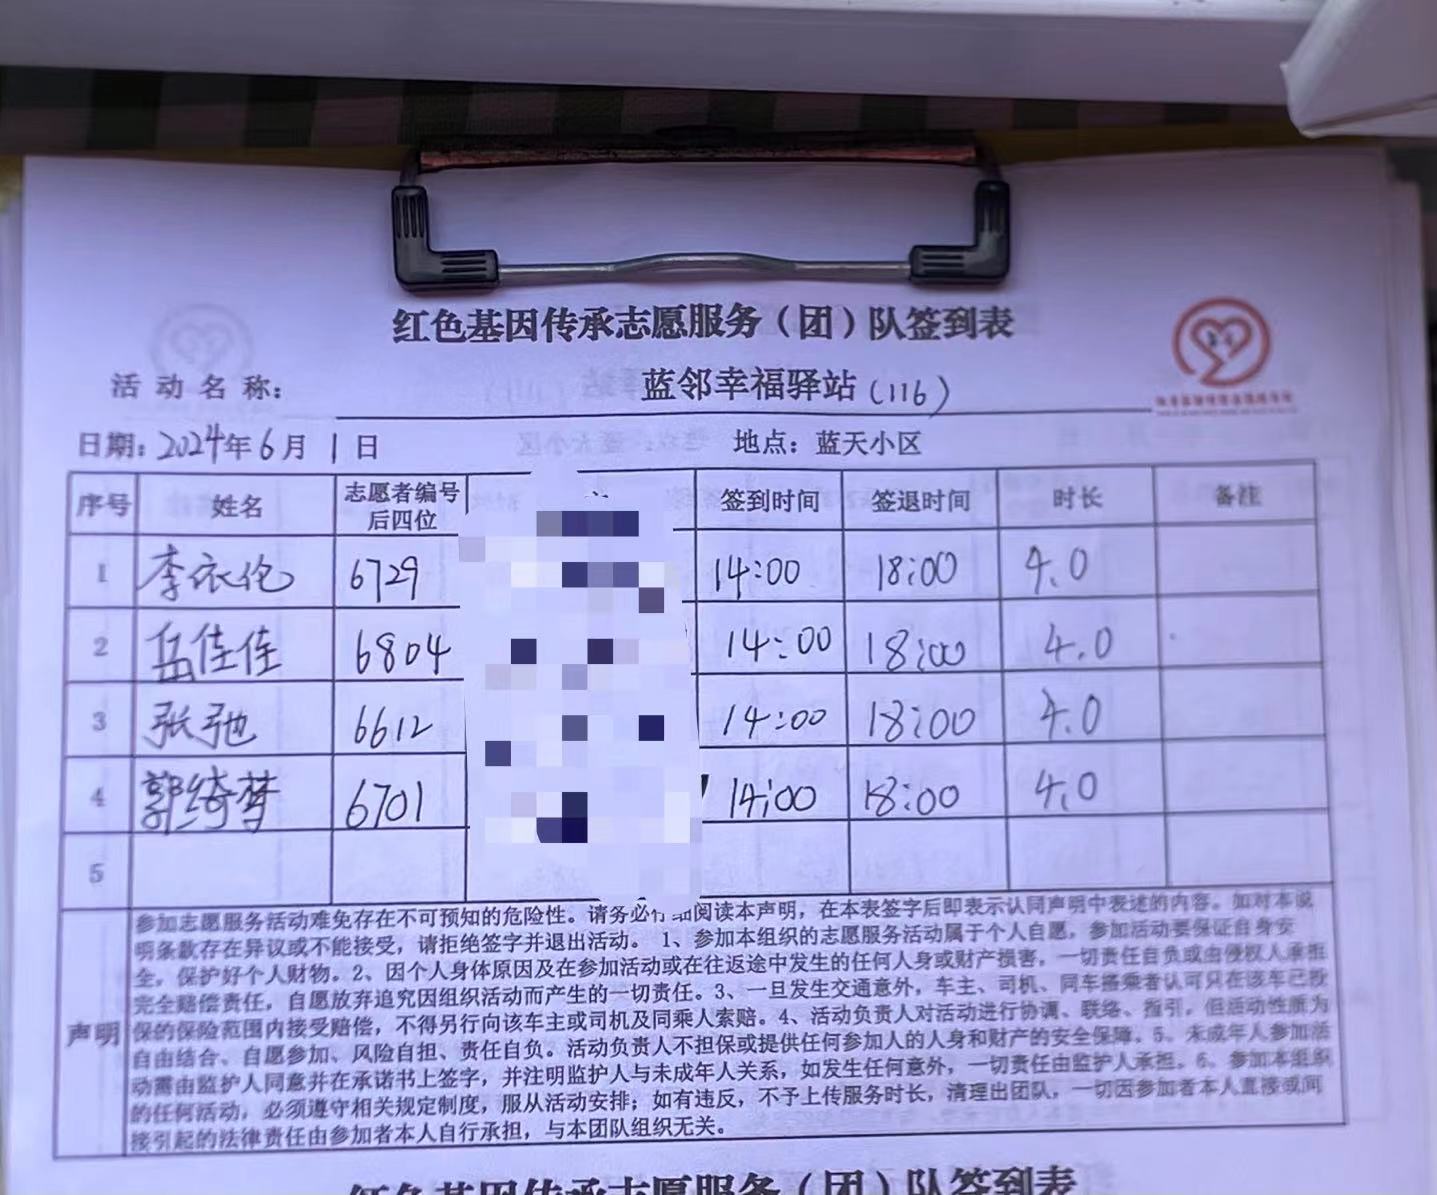 红色基因传承志愿服务（团）队签到表
活动名称： 蓝邻幸福驿站（116）
日期：2024年6月1日 地点：蓝天小区
序号 姓名 志愿者编号后四位 签到时间 签退时间 时长 备注
1 李依伦 6729 14:00 18:00 4.0
2 岳佳佳 6804 14:00 18:00 4.0
3 张弛 6612 14:00 18:00 4.0
4 郭绮梦 6701 14:00 18:00 4.0
5
声明
参加志愿服务活动难免存在不可预知的危险性。请务必仔细阅读本声明，在本表签字后即表示认同声明中表述的内容。如对本说
明条款存在异议或不能接受，请拒绝签字并退出活动。 1、参加本组织的志愿服务活动属于个人自愿，参加活动要保证自身安
全，保护好个人财物。2、因个人身体原因及在参加活动或在往返途中发生的任何人身或财产损害，一切责任自负或由侵权人承担
完全赔偿责任，自愿放弃追究因组织活动而产生的一切责任。3、一旦发生交通意外，车主、司机、同车搭乘者认可只在该车已投
保的保险范围内接受赔偿，不得另行向该车主或司机及同乘人索赔。4、活动负责人对活动进行协调、联络、指引，但活动性质为
自由结合、自愿参加、风险自担、责任自负。活动负责人不担保或提供任何参加人的人身和财产的安全保障。5、未成年人参加活
动需由监护人同意并在承诺书上签字，并注明监护人与未成年人关系，如发生任何意外，一切责任由监护人承担。6、参加本组织
的任何活动，必须遵守相关规定制度，服从活动安排；如有违反，不予上传服务时长，清理出团队，一切因参加者本人直接或间
接引起的法律责任由参加者本人自行承担，与本团队组织无关。
红色基因传承志愿服务（团）队签到表